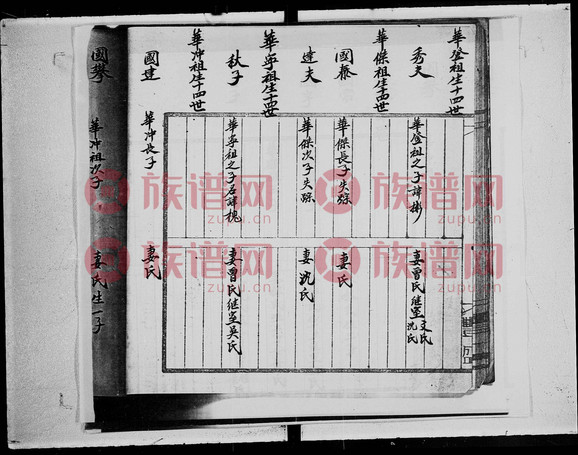 華登祖生十四世
秀夫
華登祖之子諱彬
妻曾氏继室文氏沈氏
華傑祖生十四世
國泰
華傑長子失踪
妻氏
達夫
華傑次子失踪
妻沈氏
華寧祖生十四世
秋子
華寧祖之子名諱槐
妻曾氏继室吴氏
華冲祖生十四世
國建
華冲長子
妻氏
國攀
華冲祖次子
妻氏生一子
族谱网
zupu.cn
族谱网
zupu.cn
族谱网
zupu.cn
族谱网
zupu.cn